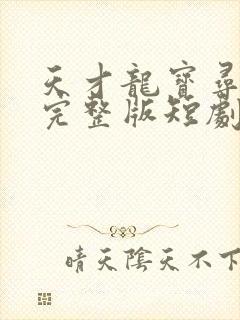 天才龍寶尋
完整版短劇
晴天陰天不下